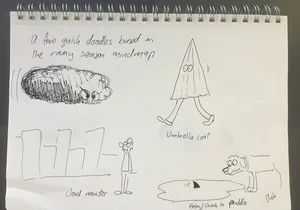 A few quick doodles based on
the rainy season mindmap
Umbrella coat
Cloud monster
in puddle